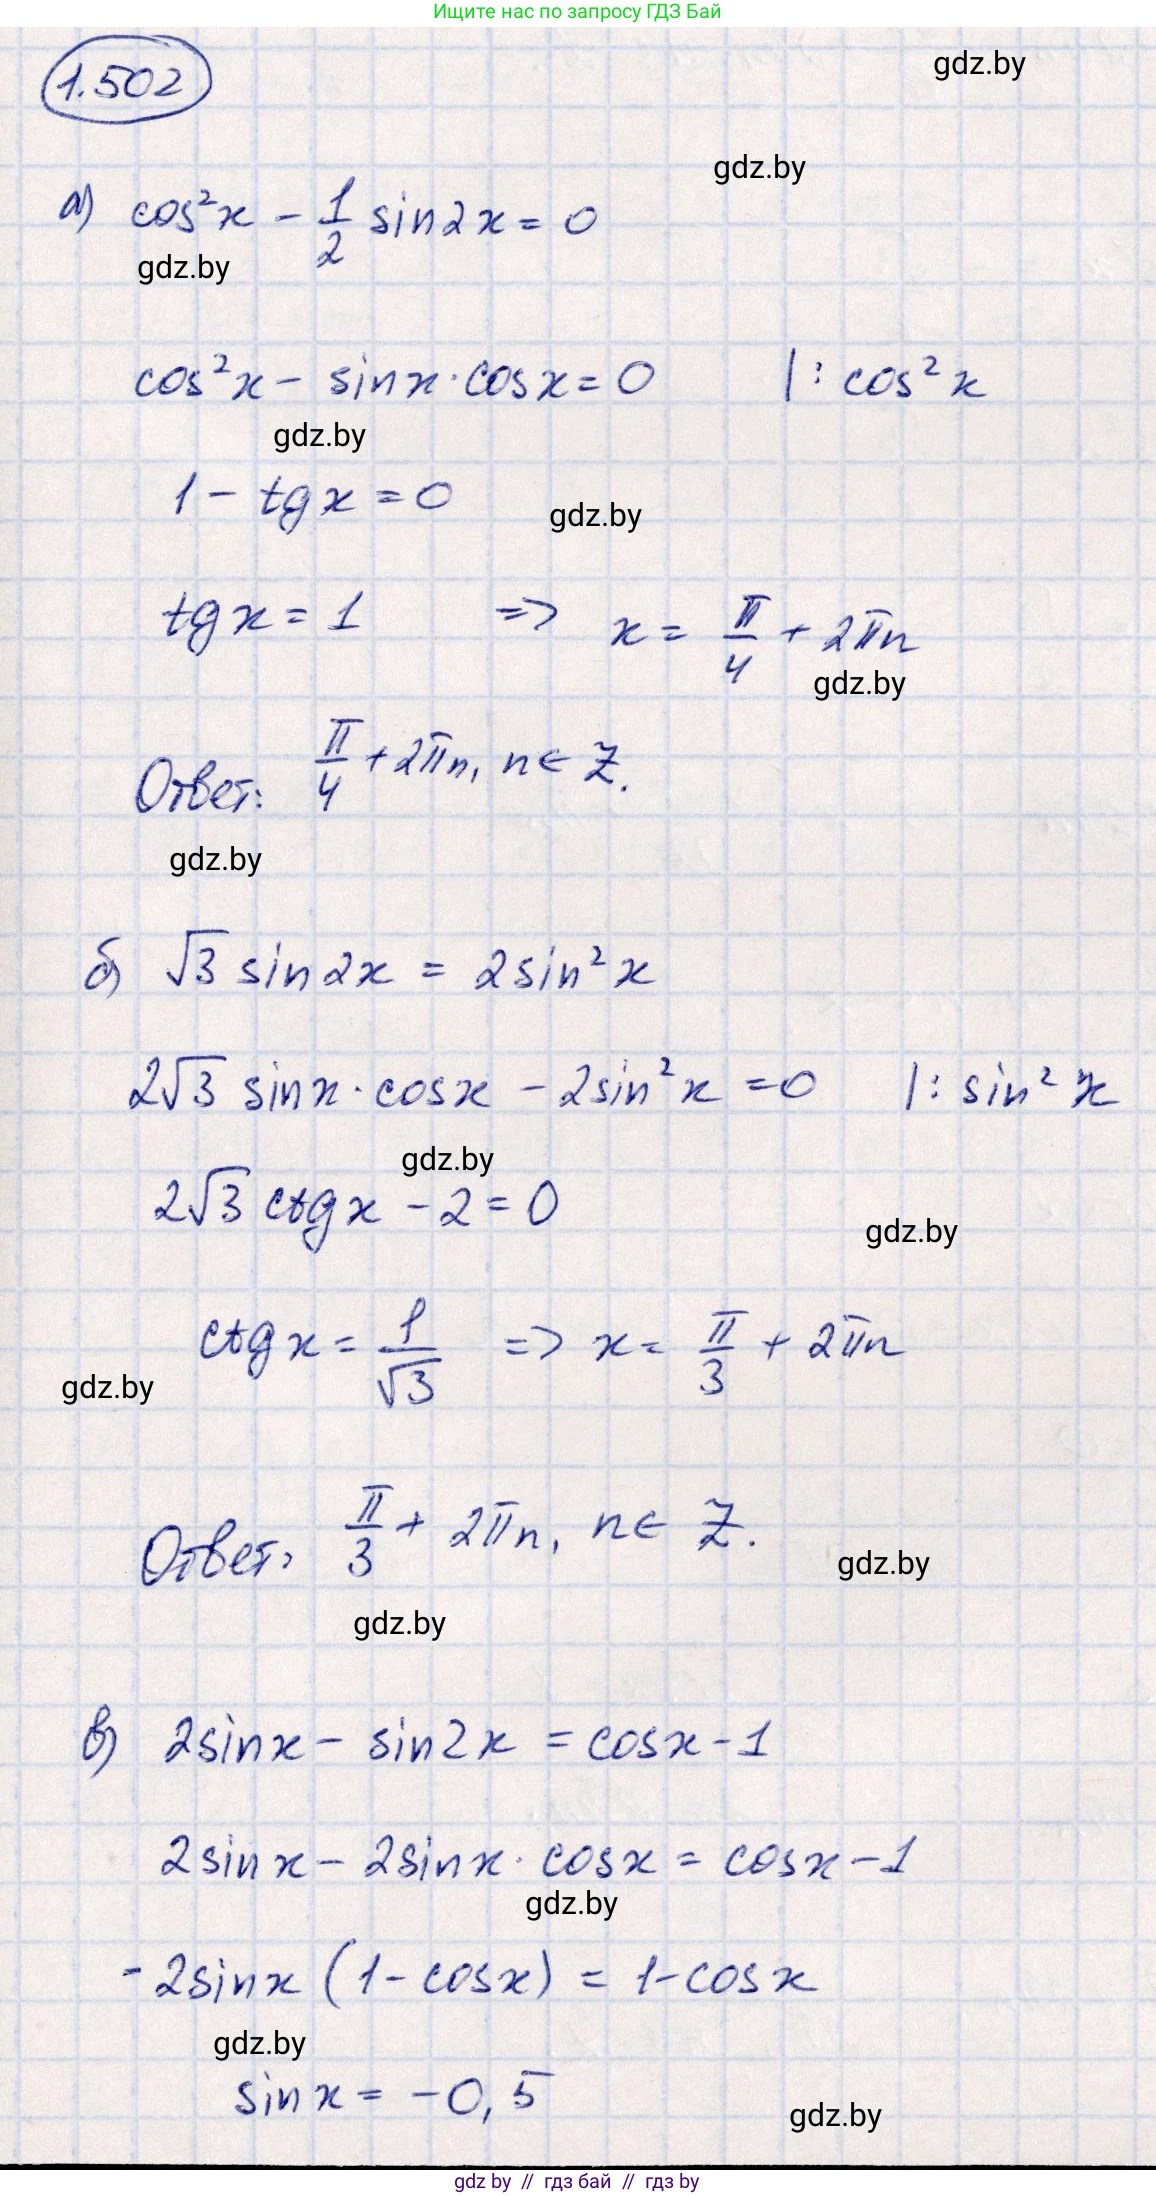 Ищите нас по запросу ГДЗ Бай
1.502
gdz.by
gdz.by
а) cos²x - 1/2 sin2x = 0
gdz.by
cos²x - sinx · cosx = 0 |: cos²x
gdz.by
1 - tgx = 0
gdz.by
tgx = 1 => x = π/4 + 2πn
gdz.by
Ответ: π/4 + 2πn, n ∈ Z.
gdz.by
б) √3 sin2x = 2sin²x
2√3 sinx · cosx - 2sin²x = 0 |: sin²x
gdz.by
2√3 ctgx - 2 = 0
gdz.by
ctgx = 1/√3 => x = π/3 + 2πn
gdz.by
Ответ: π/3 + 2πn, n ∈ Z.
gdz.by
gdz.by
в) 2sinx - sin2x = cosx - 1
2sinx - 2sinx · cosx = cosx - 1
gdz.by
-2sinx (1 - cosx) = 1 - cosx
gdz.by
sinx = -0,5
gdz.by
gdz by // гдз бай // гдз by